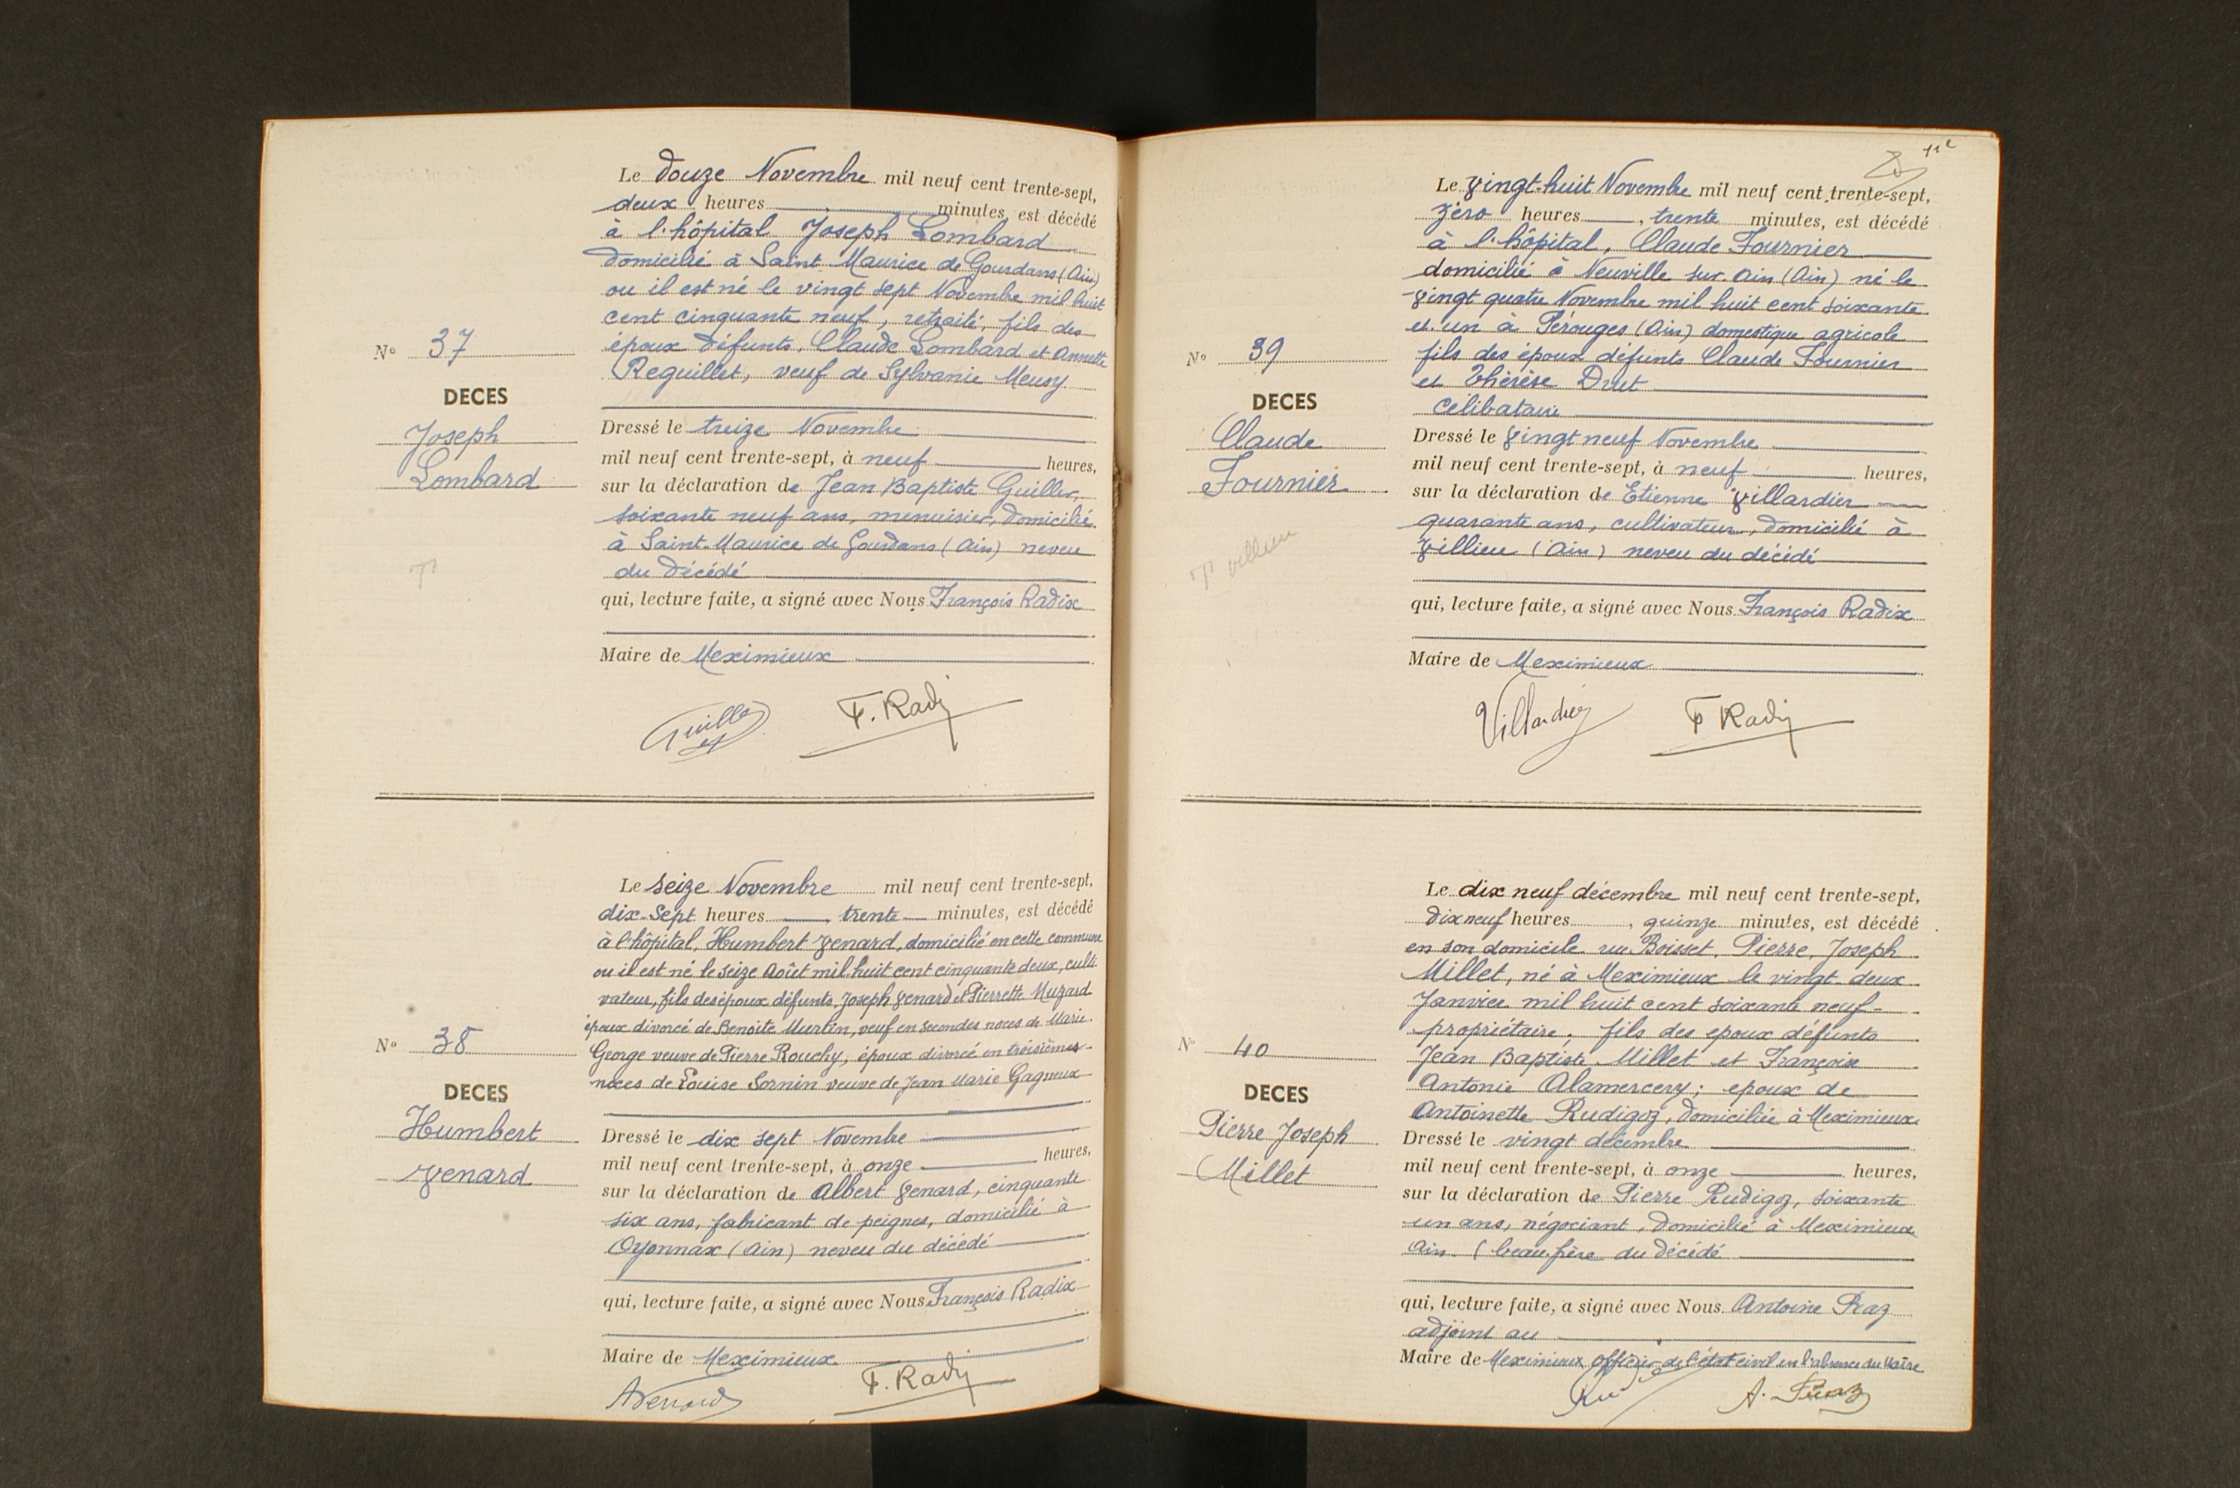 Le douze Novembre mil neuf cent trente-sept,
deux heures minutes, est décédé
à l'hôpital Joseph Lombard
domicilié à Saint Maurice de Gourdans (Ain)
ou il est né le vingt sept Novembre mil huit
cent cinquante neuf, retraité, fils des
époux défunts, Claude Lombard et Annette
Reguillet, veuf de Sylvanie Meusy
N° 37
DECES
Joseph
Lombard
Dressé le treize Novembre
mil neuf cent trente-sept, à neuf heures,
sur la déclaration de Jean Baptiste Guiller,
soixante neuf ans, menuisier, domicilié
à Saint-Maurice de Gourdans (Ain) neveu
du décédé
T
qui, lecture faite, a signé avec Nous François Radix
Maire de Meximieux
Guiller
F. Radix
Le seize Novembre mil neuf cent trente-sept,
dix-sept heures trente minutes, est décédé
à l'hôpital, Humbert Venard, domicilié en cette commune
ou il est né le seize Août mil huit cent cinquante deux, culti
vateur, fils des époux défunts, Joseph Venard et Pierrette Muzard
époux divorcé de Benoite Murtin, veuf en secondes noces de Marie
George veuve de Pierre Rouchy, époux divorcé en troisièmes
noces de Louise Sornin veuve de Jean Marie Gagneux
N° 38
DECES
Humbert
Venard
Dressé le dix sept Novembre
mil neuf cent trente-sept, à onze heures,
sur la déclaration de Albert Venard, cinquante
six ans, fabricant de peignes, domicilié à
Oyonnax (Ain) neveu du décédé
qui, lecture faite, a signé avec Nous François Radix
Maire de Meximieux
A Venard
F. Radix
11e
Le Vingt-huit Novembre mil neuf cent trente-sept,
zéro heures, trente minutes, est décédé
à l'hôpital, Claude Fournier
domicilié à Neuville sur Ain (Ain) né le
vingt quatre Novembre mil huit cent soixante
et un à Pérouges (Ain) domestique agricole
fils des époux défunts Claude Fournier
et Thérèse Drut
célibataire
N° 39
DECES
Claude
Fournier
Dressé le Vingt neuf Novembre
mil neuf cent trente-sept, à neuf heures,
sur la déclaration de Etienne Villardier
quarante ans, cultivateur, domicilié à
Villieu (Ain) neveu du décédé
T villieu
qui, lecture faite, a signé avec Nous François Radix
Maire de Meximieux
Villardier
F Radix
Le dix neuf décembre mil neuf cent trente-sept,
dix neuf heures, quinze minutes, est décédé
en son domicile rue Boisset, Pierre, Joseph
Millet, né à Meximieux le vingt-deux
Janvier mil huit cent soixante neuf-
propriétaire, fils des epoux défunts
Jean Baptiste Millet et Françoise
Antonie Alamercery; epoux de
Antoinette Rudigoz, domiciliée à Meximieux
N° 40
DECES
Pierre Joseph
Millet
Dressé le vingt décembre
mil neuf cent trente-sept, à onze heures,
sur la déclaration de Pierre Rudigoz, soixante
un ans, négociant, domicilié à Meximieux
Ain ( beau-frère du décédé
qui, lecture faite, a signé avec Nous Antoine Praz
adjoint au
Maire de Meximieux officier de l'état civil en l'absence du Maire
A. Praz